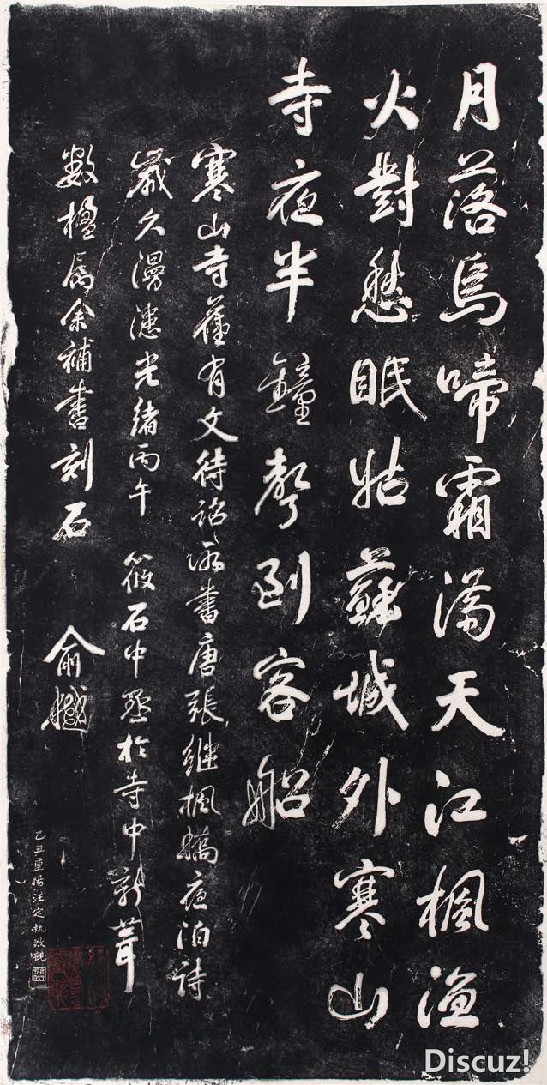 月落烏啼霜滿天江楓漁
火對愁眠姑蘇城外寒山
寺夜半鐘聲到客船
寒山寺舊有文待詔所書唐張繼楓橋夜泊詩
歲久漫漶光緒丙午 筱石中丞於寺中新葺
數楹屬余補書刻石 俞樾
Discuz!